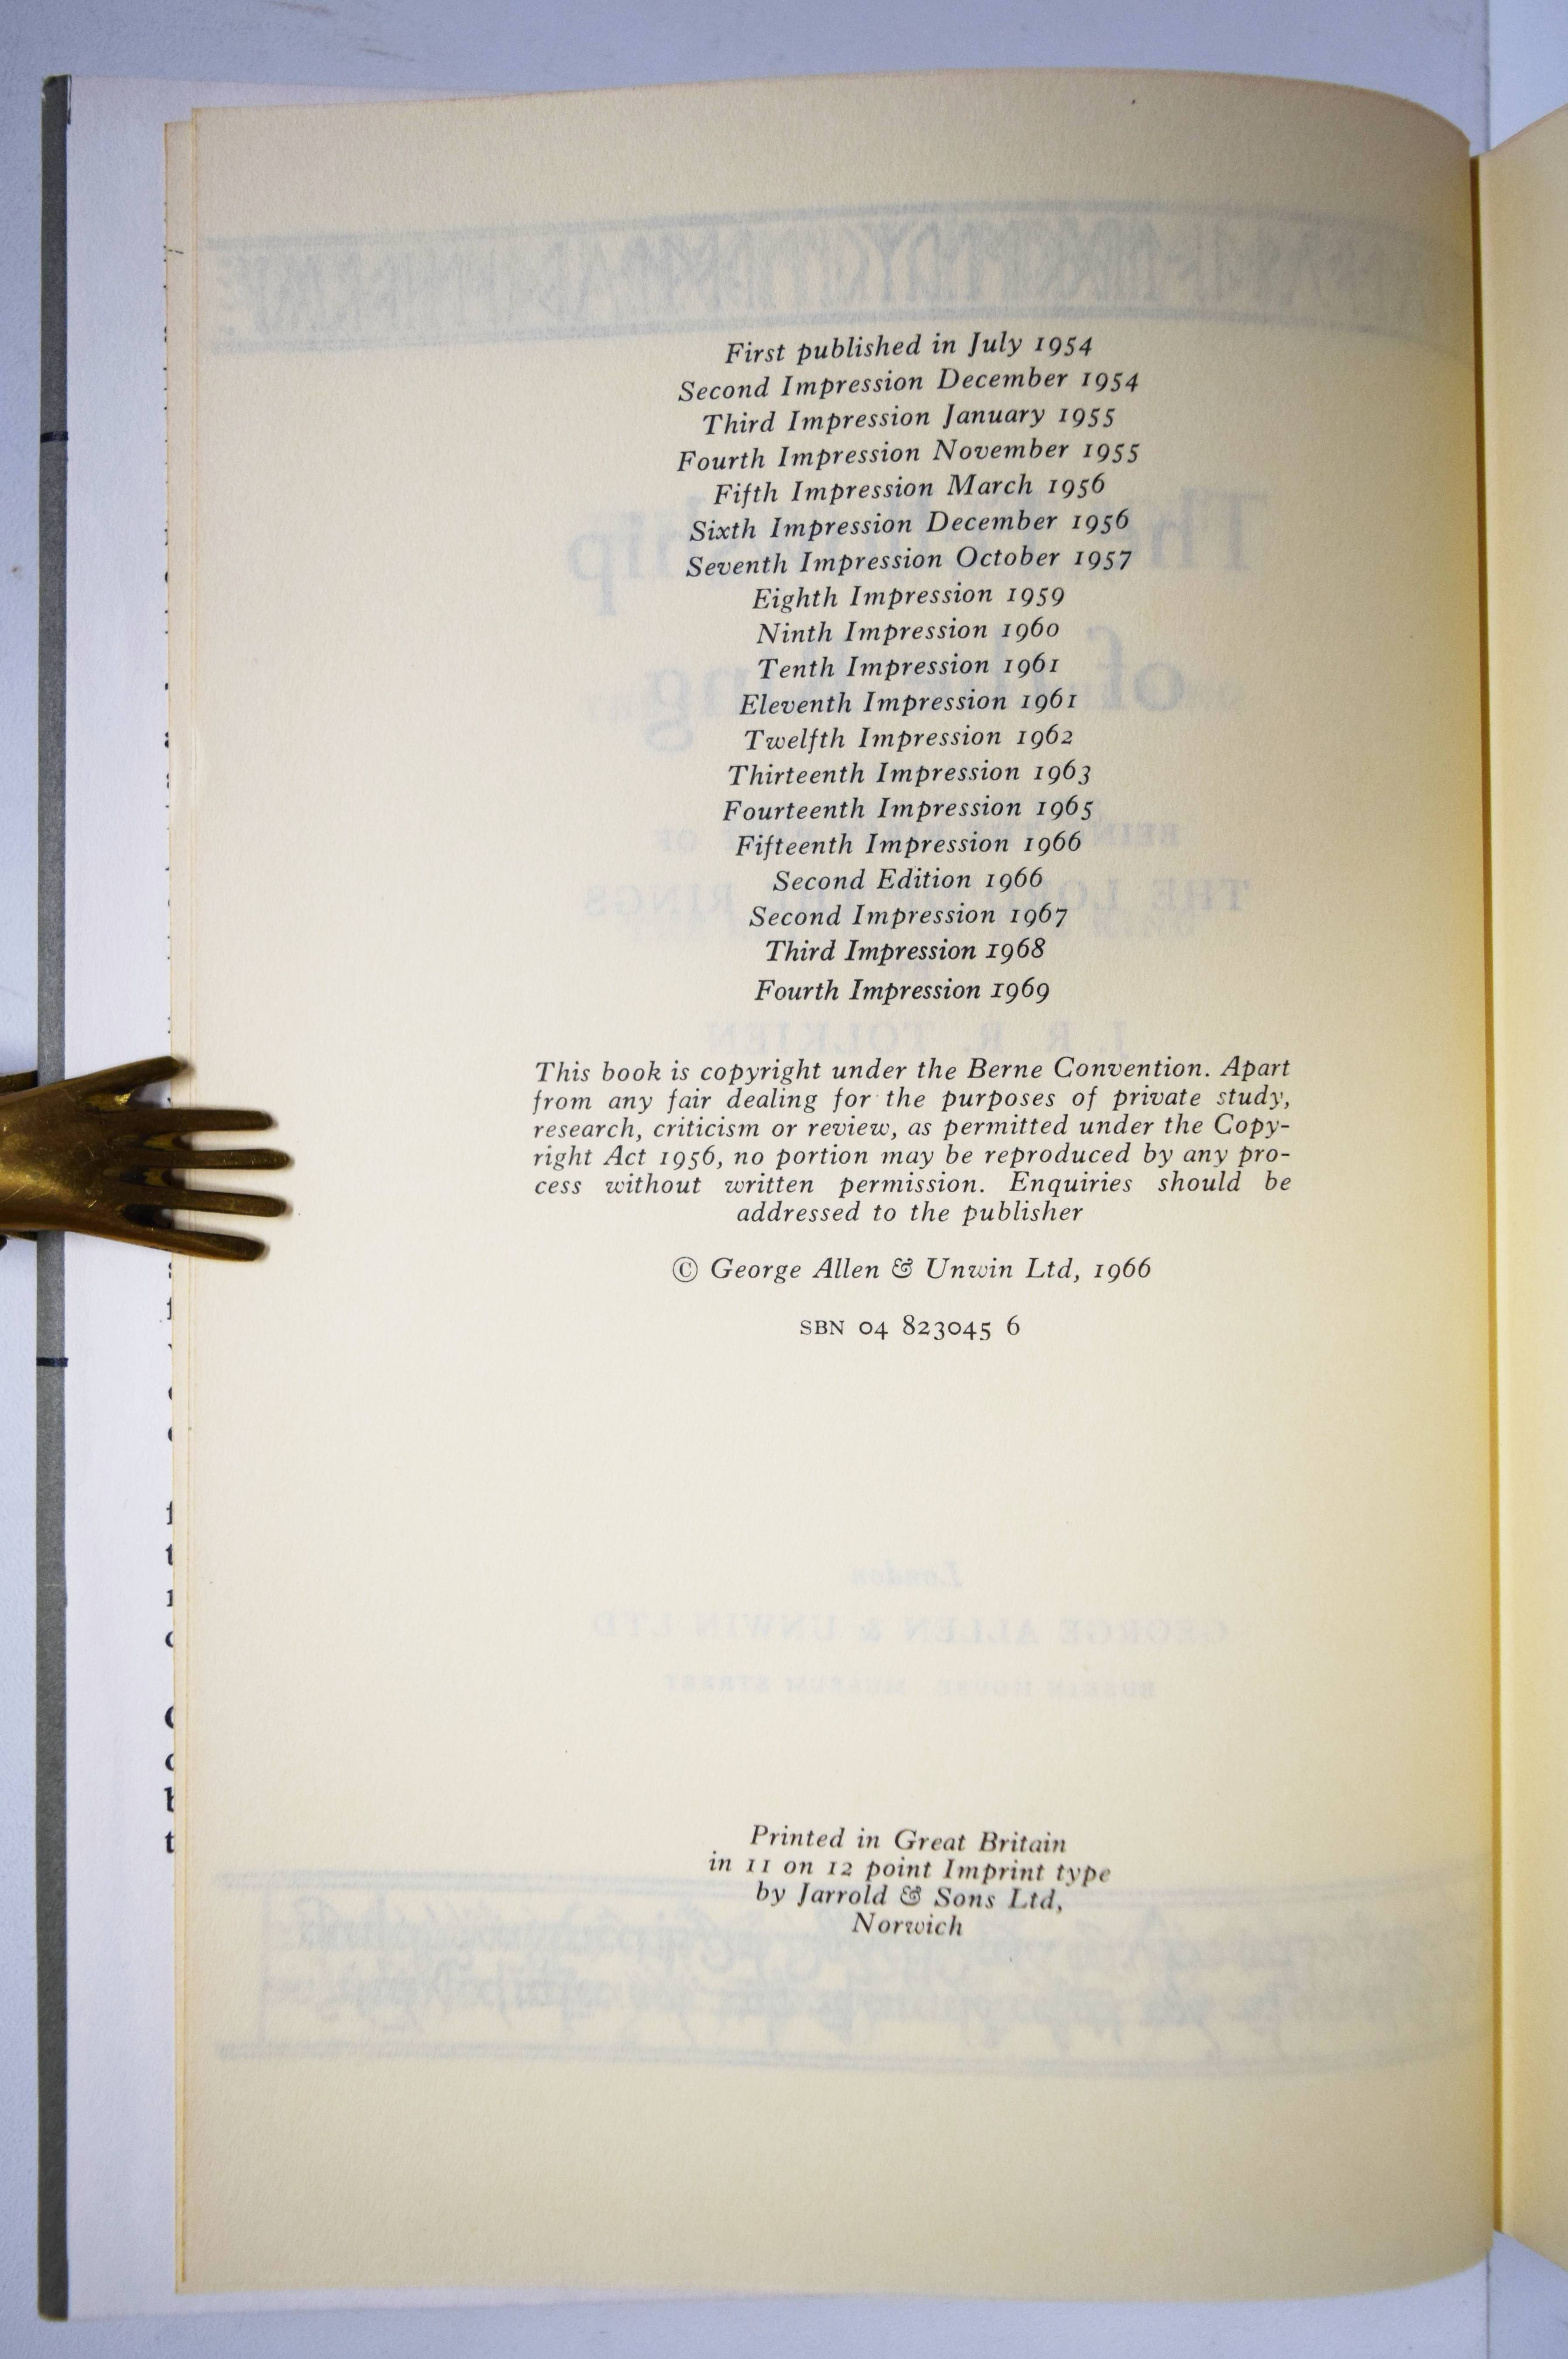 First published in July 1954
Second Impression December 1954
Third Impression January 1955
Fourth Impression November 1955
Fifth Impression March 1956
Sixth Impression December 1956
Seventh Impression October 1957
Eighth Impression 1959
Ninth Impression 1960
Tenth Impression 1961
Eleventh Impression 1961
Twelfth Impression 1962
Thirteenth Impression 1963
Fourteenth Impression 1965
Fifteenth Impression 1966
Second Edition 1966
Second Impression 1967
Third Impression 1968
Fourth Impression 1969
This book is copyright under the Berne Convention. Apart
from any fair dealing for the purposes of private study,
research, criticism or review, as permitted under the Copy-
right Act 1956, no portion may be reproduced by any pro-
cess without written permission. Enquiries should be
addressed to the publisher
© George Allen & Unwin Ltd, 1966
SBN 04 823045 6
Printed in Great Britain
in 11 on 12 point Imprint type
by Jarrold & Sons Ltd,
Norwich